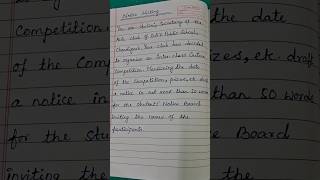 Notice Writing
You are Secretary of the
club of Public School,
Chandigarh. Your club has decided
to organise an Inter-class
Competition. Mentioning the date
of the Competition, prizes, etc. draft
a notice in not more than 50 words
for the Students' Notice Board
inviting the names of the
participants.
the date
of the Comp
zes, etc. draft
a notice in
than 50 words
for the Stu
Board
inviting the